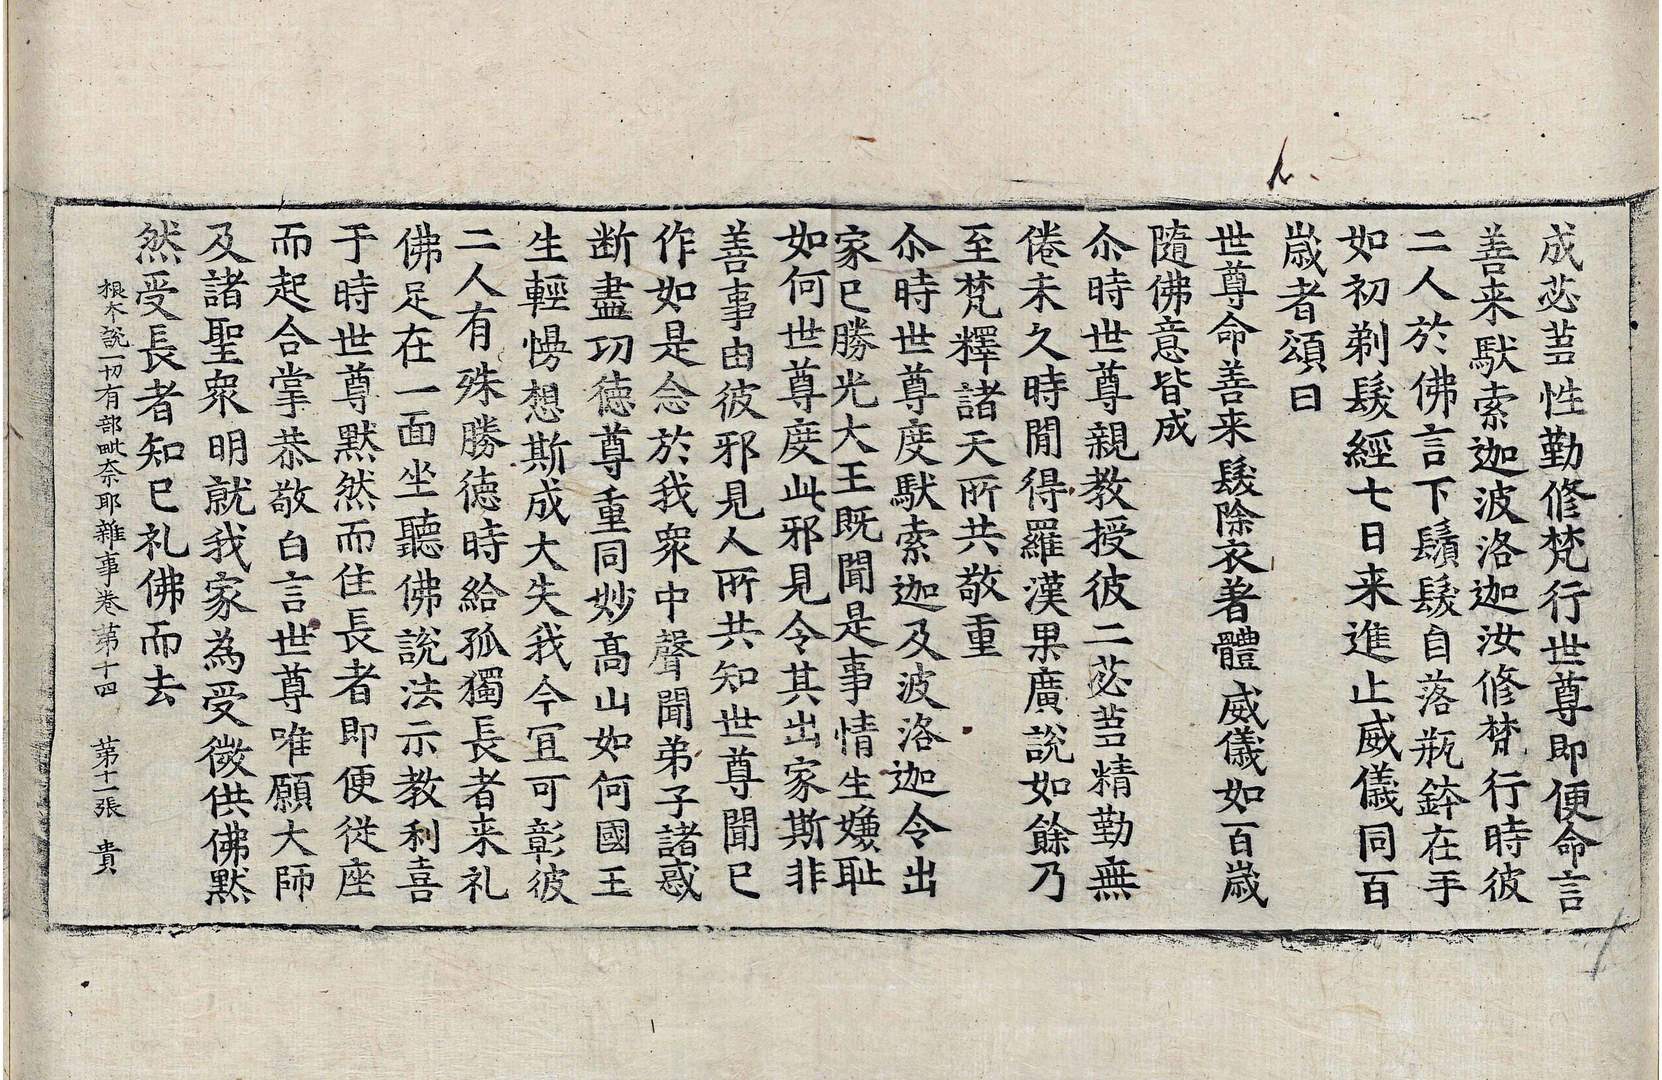 成苾芻性勤修梵行世尊即便命言
善来馱索迦波洛迦汝修梵行時彼
二人於佛言下鬚髮自落瓶鉢在手
如初剃髮經七日来進止威儀同百
歲者頌曰
世尊命善来 髮除衣著體 威儀如百歲
隨佛意皆成
尒時世尊親教授彼二苾芻精勤無
倦未久時間得羅漢果廣說如餘乃
至梵釋諸天所共敬重
尒時世尊度馱索迦及波洛迦令出
家已勝光大王既聞是事情生嫌耻
如何世尊度此邪見令其出家斯非
善事由彼邪見人所共知世尊聞已
作如是念於我衆中聲聞弟子諸惑
断盡功德尊重同妙高山如何國王
生輕慢想斯成大失我今冝可彰彼
二人有殊勝德時給孤獨長者来礼
佛足在一面坐聽佛說法示教利喜
于時世尊默然而住長者即便從座
而起合掌恭敬白言世尊唯願大師
及諸聖衆明就我家為受微供佛默
然受長者知已礼佛而去
根本說一切有部毗奈耶雜事卷第十四 第十一張 貴